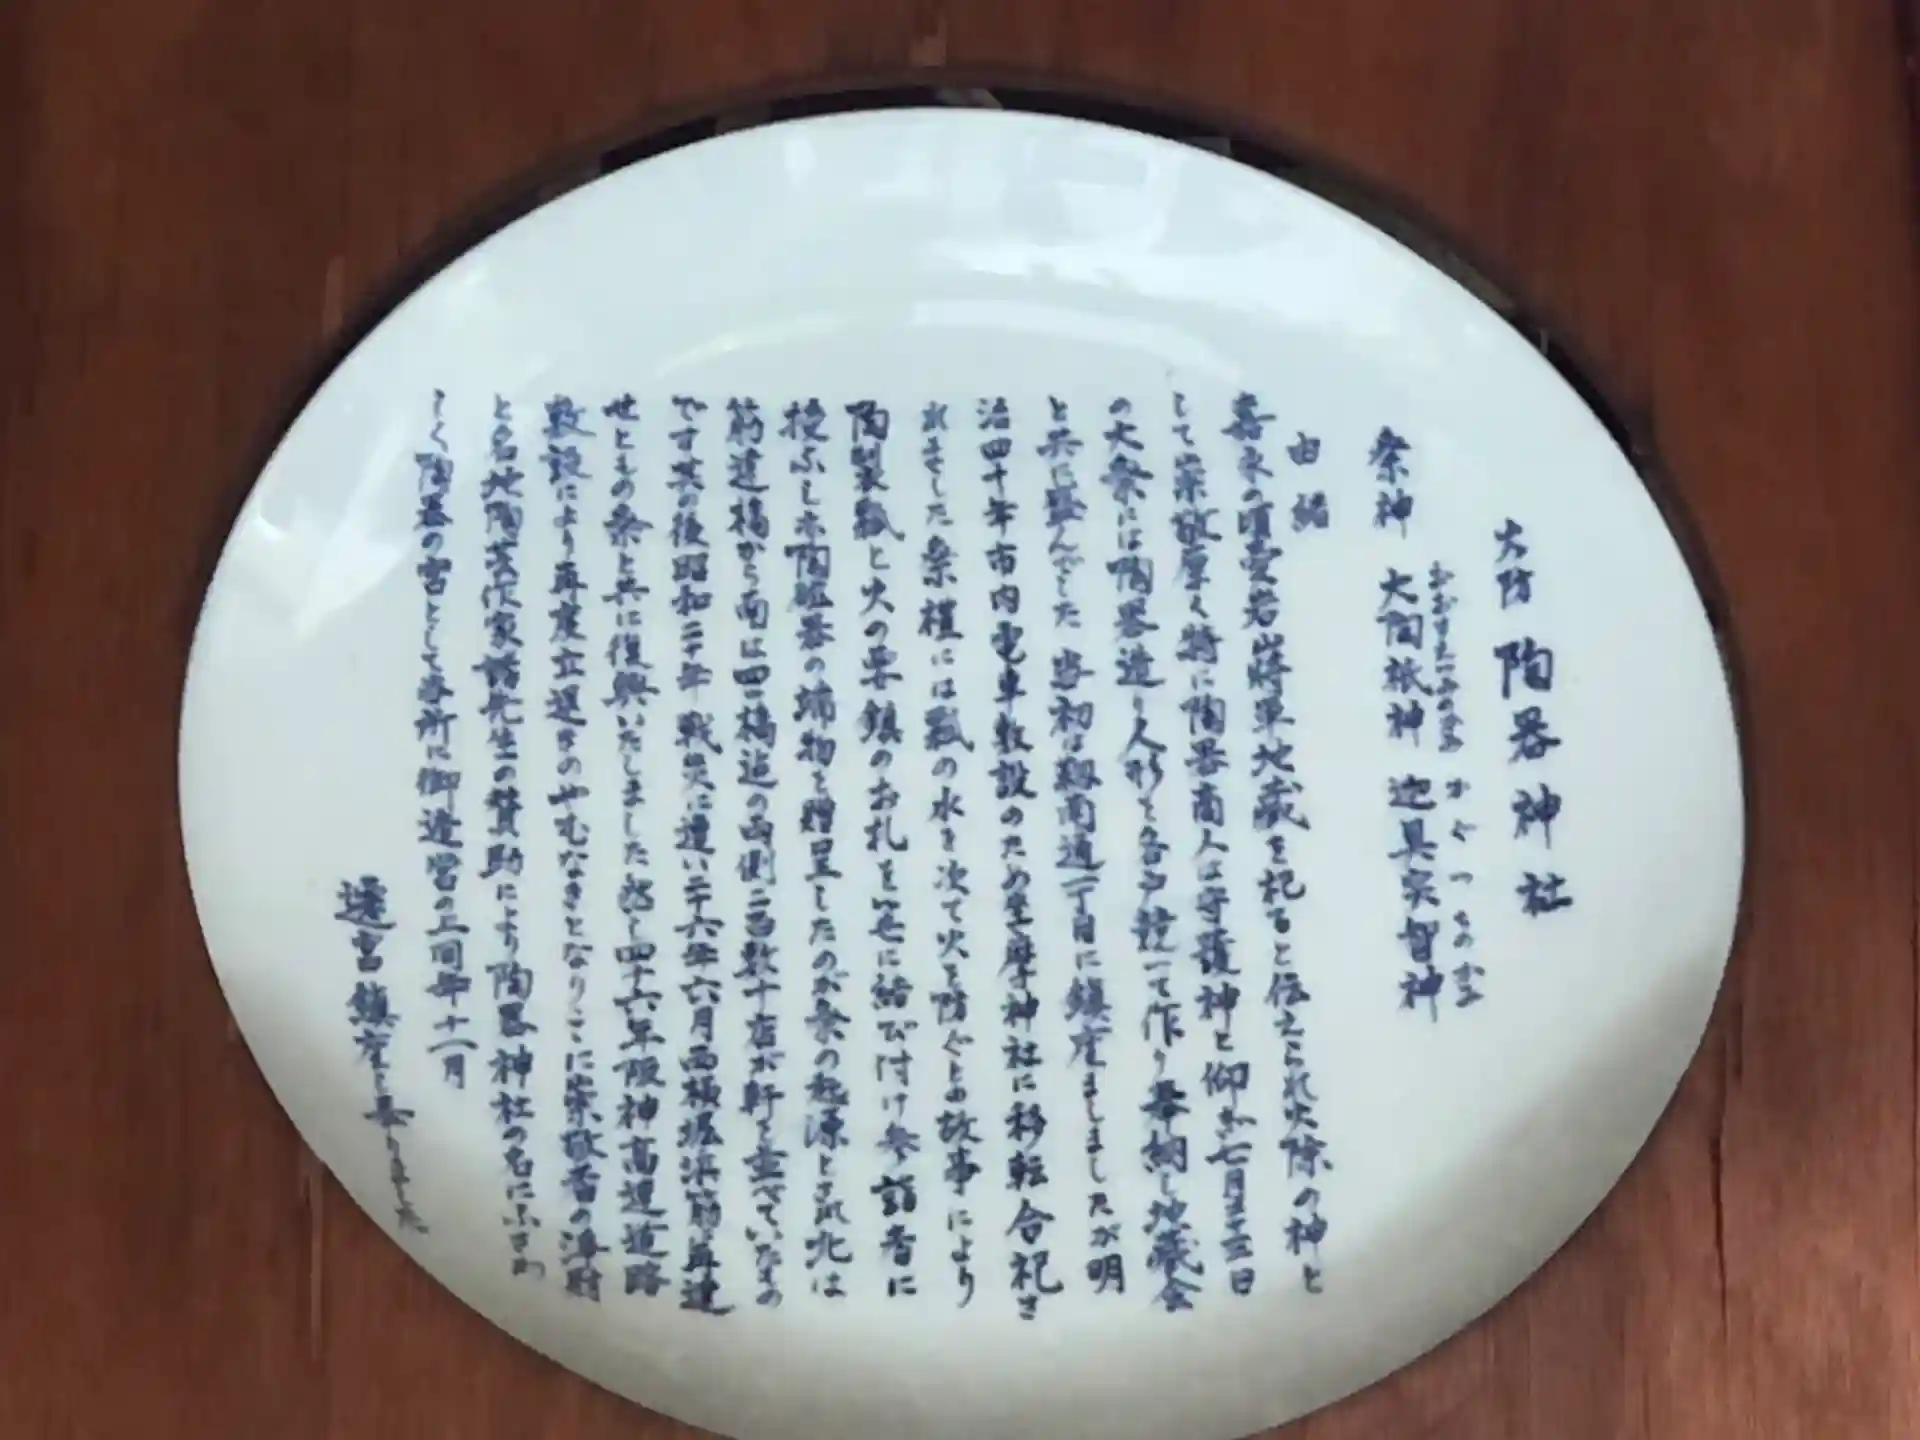 火防 陶器神社
おおすえつみのかみ かぐつちのかみ
祭神 大陶祇神 迦具突智神
由緒
嘉永の頃愛宕山将軍地蔵を祀ると伝えられ火除の神と
して崇敬厚く特に陶器商人は守護神と仰ぎ七月二十三日
の大祭には陶器造り人形を各戸競って作り奉納し地蔵会
と共に盛んでした 当初は靱南通一丁目に鎮座ましましたが明
治四十年市内電車敷設のため坐摩神社に移転合祀さ
れました祭礼には瓢の水を次て火を防ぐとの故事により
陶製瓢と火の要鎮のお札を笹に結び付け参詣者に
授ふし亦陶磁器の端物を贈呈したのが祭の起源とされ北は
筋違橋から南は四ツ橋迄の両側二百数十店が軒を並べていたもの
です其の後昭和二十年戦災に遭い二十六年六月西横堀浜筋に再建
せともの祭と共に復興いたしました然し四十六年阪神高速道路
敷設により再度立退きのやむなきとなりここに崇敬者の浄財
と各地陶芸作家諸先生の賛助により陶器神社の名にふさわ
しく陶器の宮として当所に御造営の上同年十一月
遷宮鎮座と